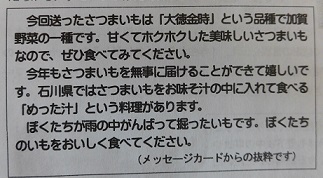 今回送ったさつまいもは「大徳金時」という品種で加賀
野菜の一種です。甘くてホクホクした美味しいさつまいも
なので、ぜひ食べてみてください。
今年もさつまいもを無事に届けることができて嬉しいで
す。石川県ではさつまいもをお味そ汁の中に入れて食べる
「めった汁」という料理があります。
ぼくたちが雨の中がんばって掘ったいもです。ぼくたち
のいもをおいしく食べてください。
（メッセージカードからの抜粋です）